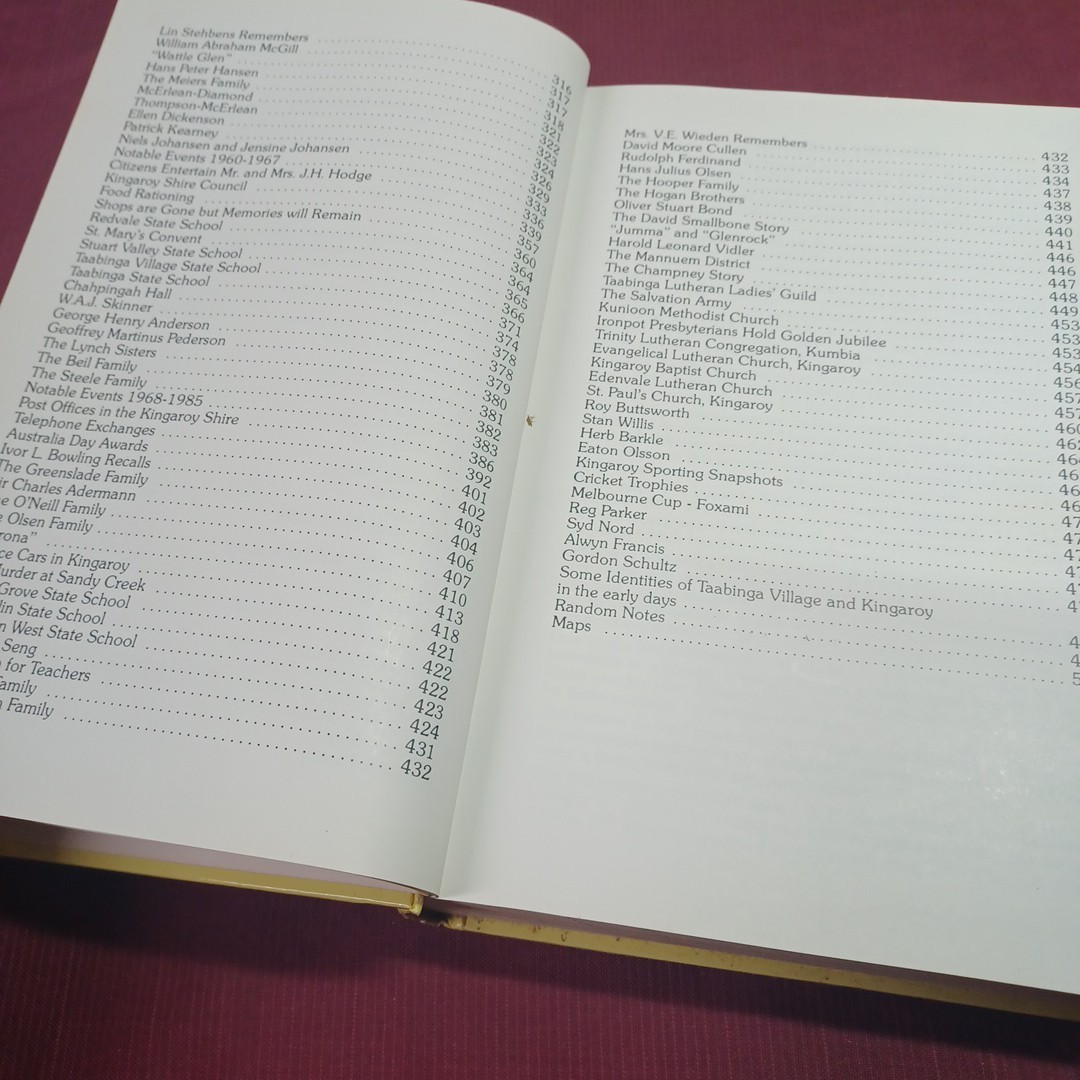 Lin Stehbens Remembers 316
William Abraham McGill 317
"Wattle Glen" 317
Hans Peter Hansen 318
The Meiers Family 321
McErlean-Diamond 322
Thompson-McErlean 323
Ellen Dickenson 324
Patrick Kearney 326
Niels Johansen and Jensine Johansen 329
Notable Events 1960-1967 333
Citizens Entertain Mr. and Mrs. J.H. Hodge 336
Kingaroy Shire Council 339
Food Rationing 357
Shops are Gone but Memories will Remain 360
Redvale State School 364
St. Mary's Convent 364
Stuart Valley State School 365
Taabinga Village State School 366
Taabinga State School 371
Chahpingah Hall 374
W.A.J. Skinner 378
George Henry Anderson 378
Geoffrey Martinus Pederson 379
The Lynch Sisters 380
The Beil Family 381
The Steele Family 382
Notable Events 1968-1985 383
Post Offices in the Kingaroy Shire 386
Telephone Exchanges 392
Australia Day Awards 401
Ivor L. Bowling Recalls 402
The Greenslade Family 403
Charles Adermann 404
O'Neill Family 406
Olsen Family 407
410
Cars in Kingaroy 413
Murder at Sandy Creek 418
Grove State School 421
State School 422
West State School 422
Seng 423
for Teachers 424
Family 431
Family 432
Mrs. V.E. Wieden Remembers 432
David Moore Cullen 433
Rudolph Ferdinand 434
Hans Julius Olsen 437
The Hooper Family 438
The Hogan Brothers 439
Oliver Stuart Bond 440
The David Smallbone Story 441
"Jumma" and "Glenrock" 446
Harold Leonard Vidler 446
The Mannuem District 447
The Champney Story 448
Taabinga Lutheran Ladies' Guild 449
The Salvation Army 453
Kunioon Methodist Church 453
Ironpot Presbyterians Hold Golden Jubilee 453
Trinity Lutheran Congregation, Kumbia 454
Evangelical Lutheran Church, Kingaroy 456
Kingaroy Baptist Church 457
Edenvale Lutheran Church 457
St. Paul's Church, Kingaroy 460
Roy Buttsworth 462
Stan Willis
Herb Barkle
Eaton Olsson
Kingaroy Sporting Snapshots
Cricket Trophies
Melbourne Cup - Foxami
Reg Parker
Syd Nord
Alwyn Francis
Gordon Schultz
Some Identities of Taabinga Village and Kingaroy
in the early days
Random Notes
Maps